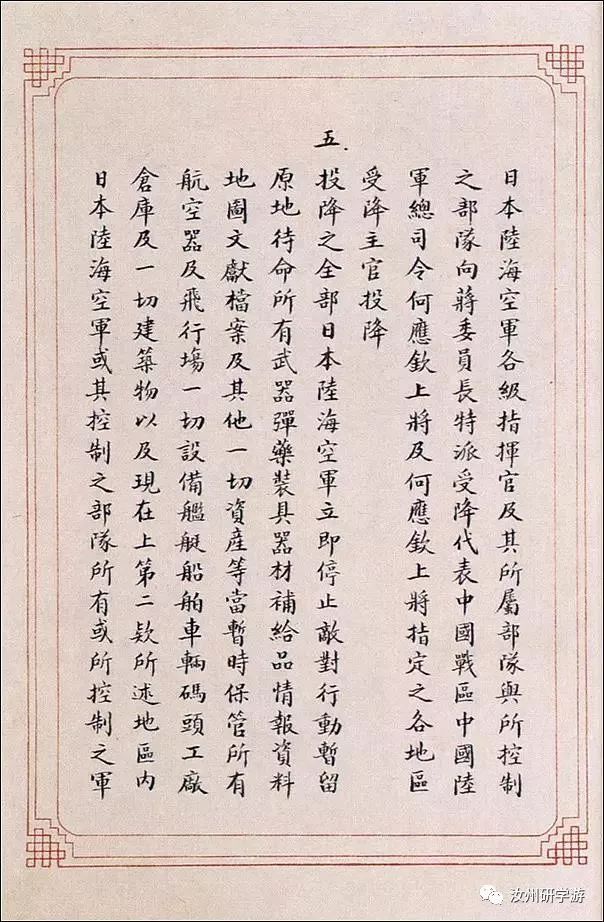 日本陸海空軍各級指揮官及其所屬部隊與所控制
之部隊向蔣委員長特派受降代表中國戰區中國陸
軍總司令何應欽上將及何應欽上將指定之各地區
受降主官投降
五.
投降之全部日本陸海空軍立即停止敵對行動暫留
原地待命所有武器彈藥裝具器材補給品情報資料
地圖文獻檔案及其他一切資產等當暫時保管所有
航空器及飛行場一切設備艦艇船舶車輛碼頭工廠
倉庫及一切建築物以及現在上第二欵所述地區內
日本陸海空軍或其控制之部隊所有或所控制之軍
汝州研学游